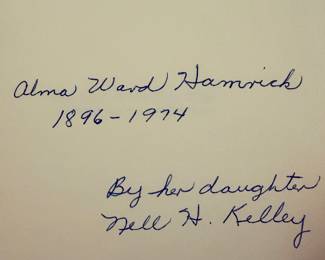 Alma Ward Hamrick
1896-1974
By her daughter
Nell H. Kelley